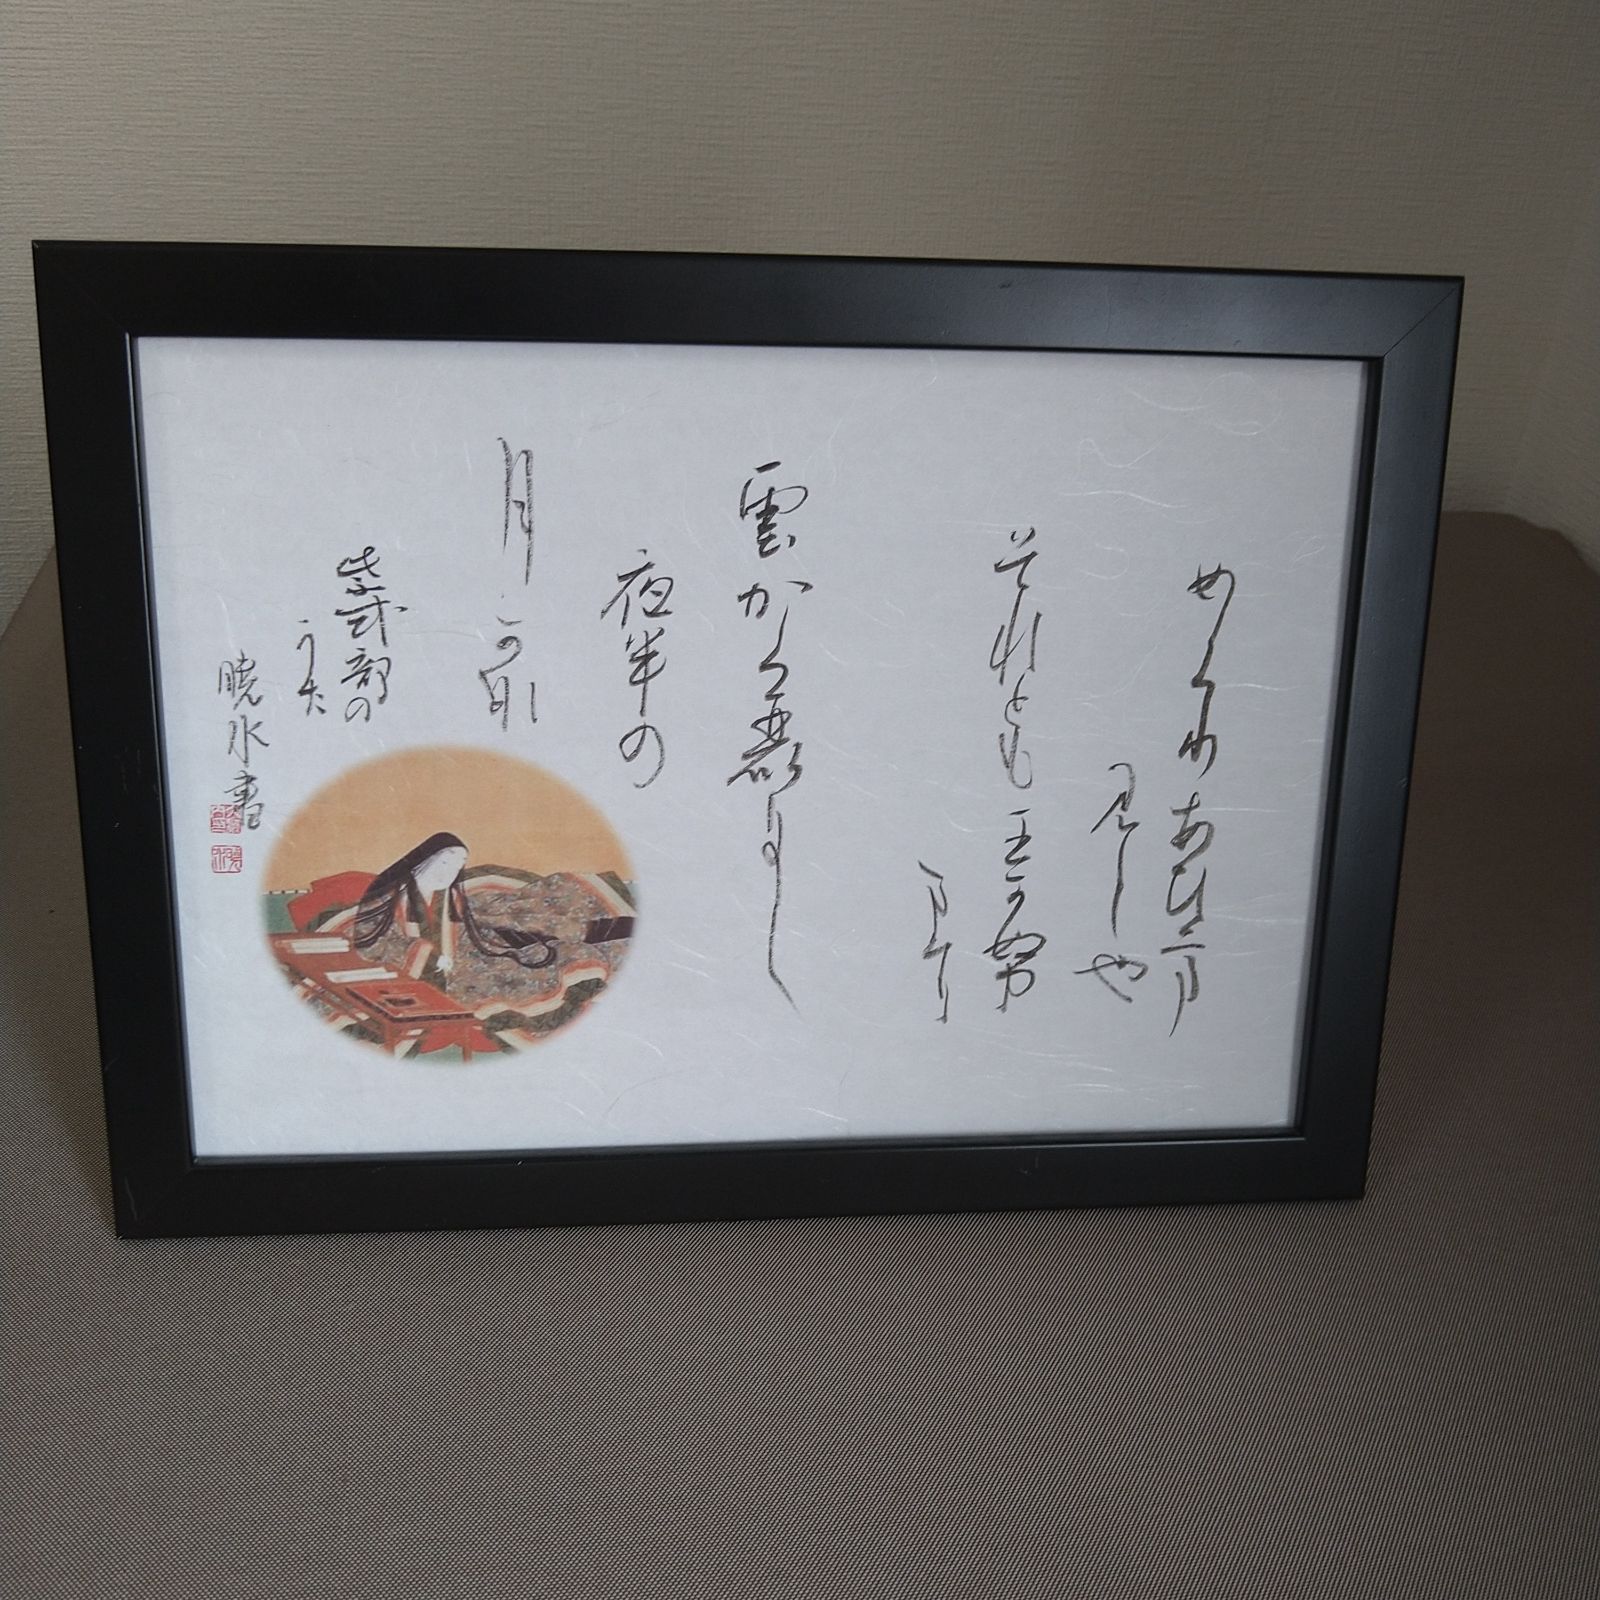 めくりあひて
見しや
それともわかぬ
まに
雲かくれにし
夜半の
月かな
紫式部の
うた
暁水書